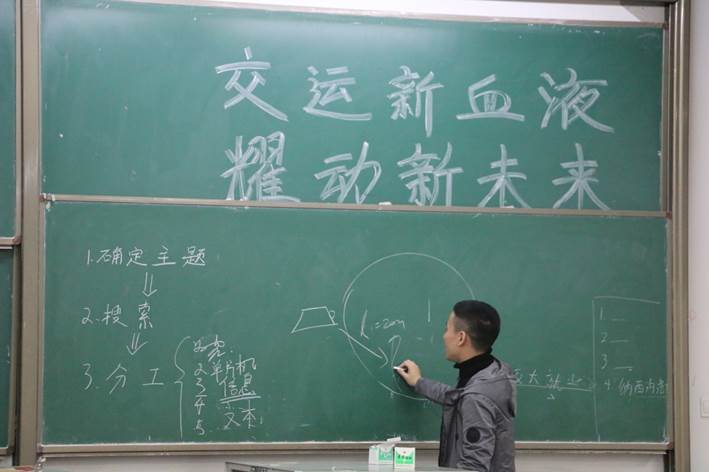 交运新血液
耀动新未来
1.确定主题
2.搜索
3.分工
2单片机
3 信息
4
5 文本
1
2
3
4